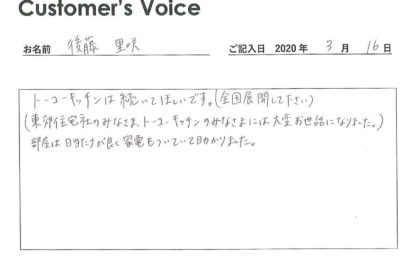 Customer's Voice
お名前 後藤 里咲 ご記入日 2020年 3月 16日
トーコーキッチンは続いてほしいです。(全国展開して下さい)
(東郊住宅社のみなさま トーコーキッチンのみなさまには大変お世話になりました。)
部屋は日当たりが良く家電もついていて助かりました。